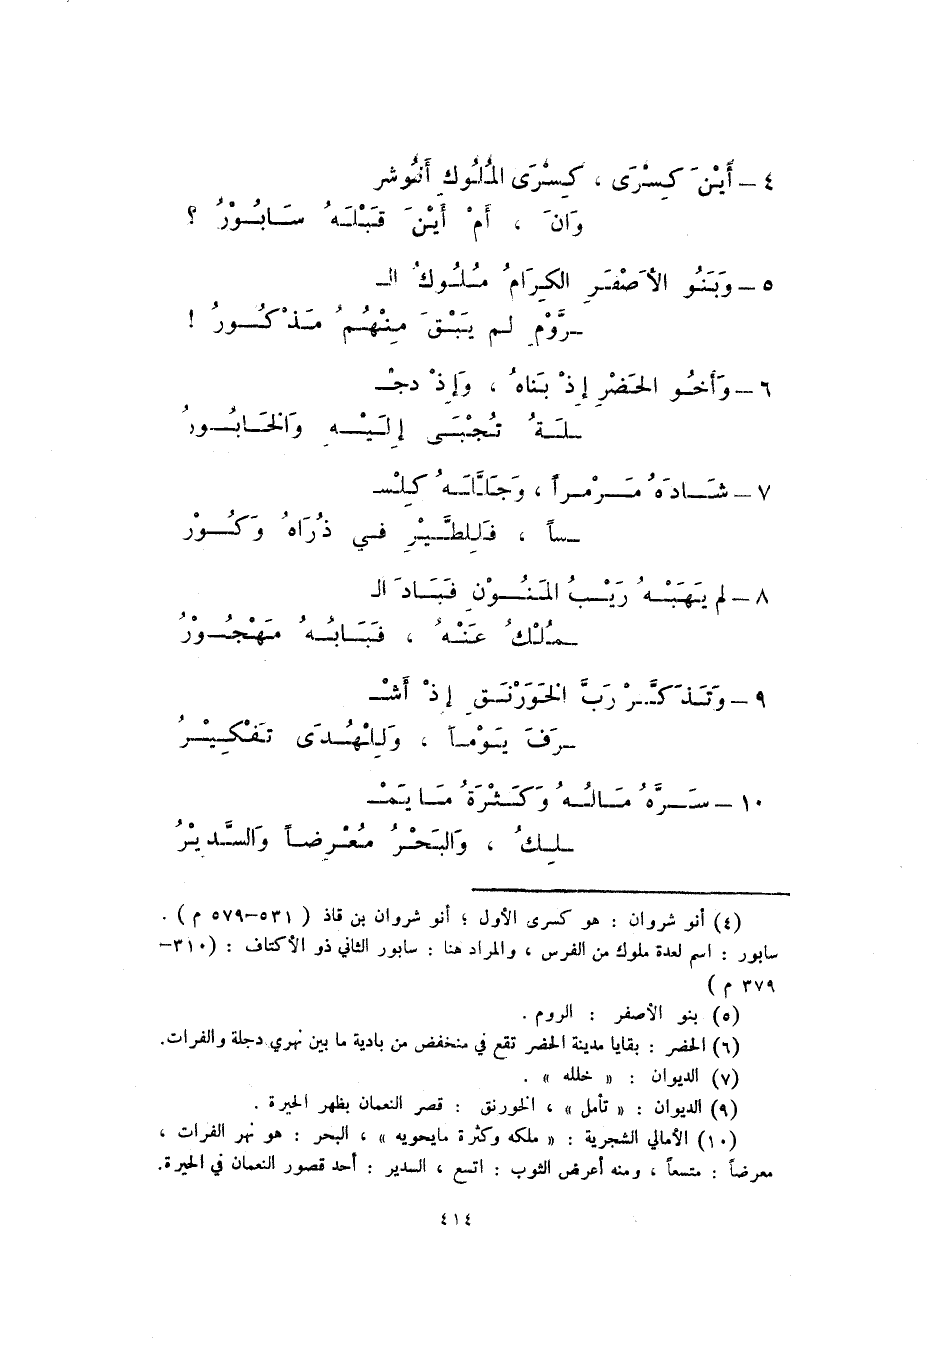 ٤ – أَيْنَ كِسْرَى ، كِسْرَى المُلُوكِ أَنُوشر
وَانَ ، أَمْ أَيْنَ قَبْلَهُ سَابُوْرُ ؟
٥ – وَبَنُو الأَصْفَرِ الكِرَامُ مُلُوكُ الـ
ـرُّوْمِ لم يَبْقَ مِنْهُمُ مَذْكُورُ !
٦ – وَأَخُو الحَضْرِ إِذْ بَنَاهُ ، وَإِذْ دجْـ
ـلَةُ تُجْبَى إِلَيْهِ وَالخَابُورُ
٧ – شَادَهُ مَرْمَراً ، وَجَلَّلَهُ كِلْـ
ـساً ، فَلِلطَّيْرِ في ذُرَاهُ وَكُوْرُ
٨ – لم يَهَبْهُ رَيْبُ المَنُوْنِ فَبَادَ الـ
ـمُلْكُ عَنْهُ ، فَبَابُهُ مَهْجُوْرُ
٩ – وَتَذَكَّرْ رَبَّ الخَوَرْنَقِ إِذْ أَشْـ
ـرَفَ يَوْماً ، وَلِلْهُدَى تَفْكِيْرُ
١٠ – سَرَّهُ مَالُهُ وَكَثْرَةُ مَا يَمْـ
ـلِكُ ، وَالبَحْرُ مُعْرِضاً وَالسَّدِيْرُ
(٤) أنو شروان : هو كسرى الأول ؛ أنو شروان بن قاذ ( ٥٣١–٥٧٩ م ) .
سابور : اسم لعدة ملوك من الفرس ، والمراد هنا : سابور الثاني ذو الأكتاف : (٣١٠–
٣٧٩ م )
(٥) بنو الأصفر : الروم .
(٦) الحضر : بقايا مدينة الحضر تقع في منخفض من بادية ما بين نهري دجلة والفرات.
(٧) الديوان : « خلله » .
(٩) الديوان : « تأمل » ، الخورنق : قصر النعمان بظهر الحيرة .
(١٠) الأمالي الشجرية : « ملكه وكثرة مايحويه » ، البحر : هو نهر الفرات ،
معرضاً : متسعاً ، ومنه أعرض الثوب : اتسع ، السدير : أحد قصور النعمان في الحيرة.
٤١٤